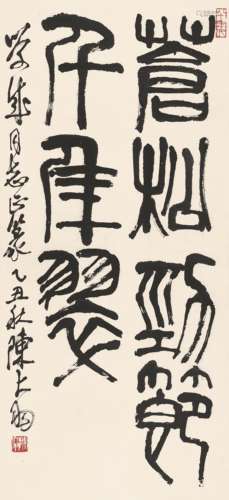 蒼松勁節
千年翠
学成同志正篆乙丑秋陳大羽